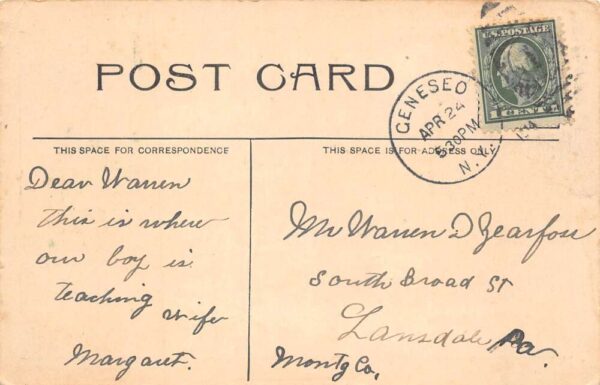 POST CARD
U.S. POSTAGE
1 CENT
GENESEO
APR 24
5 30 PM
N.Y.
THIS SPACE FOR CORRESPONDENCE
THIS SPACE IS FOR ADDRESS ONLY
Dear Warren
this is where
our boy is
teaching
wife
Margaret.
Mr Warren D Zearfoss
South Broad St
Lansdale Pa.
Montg Co,